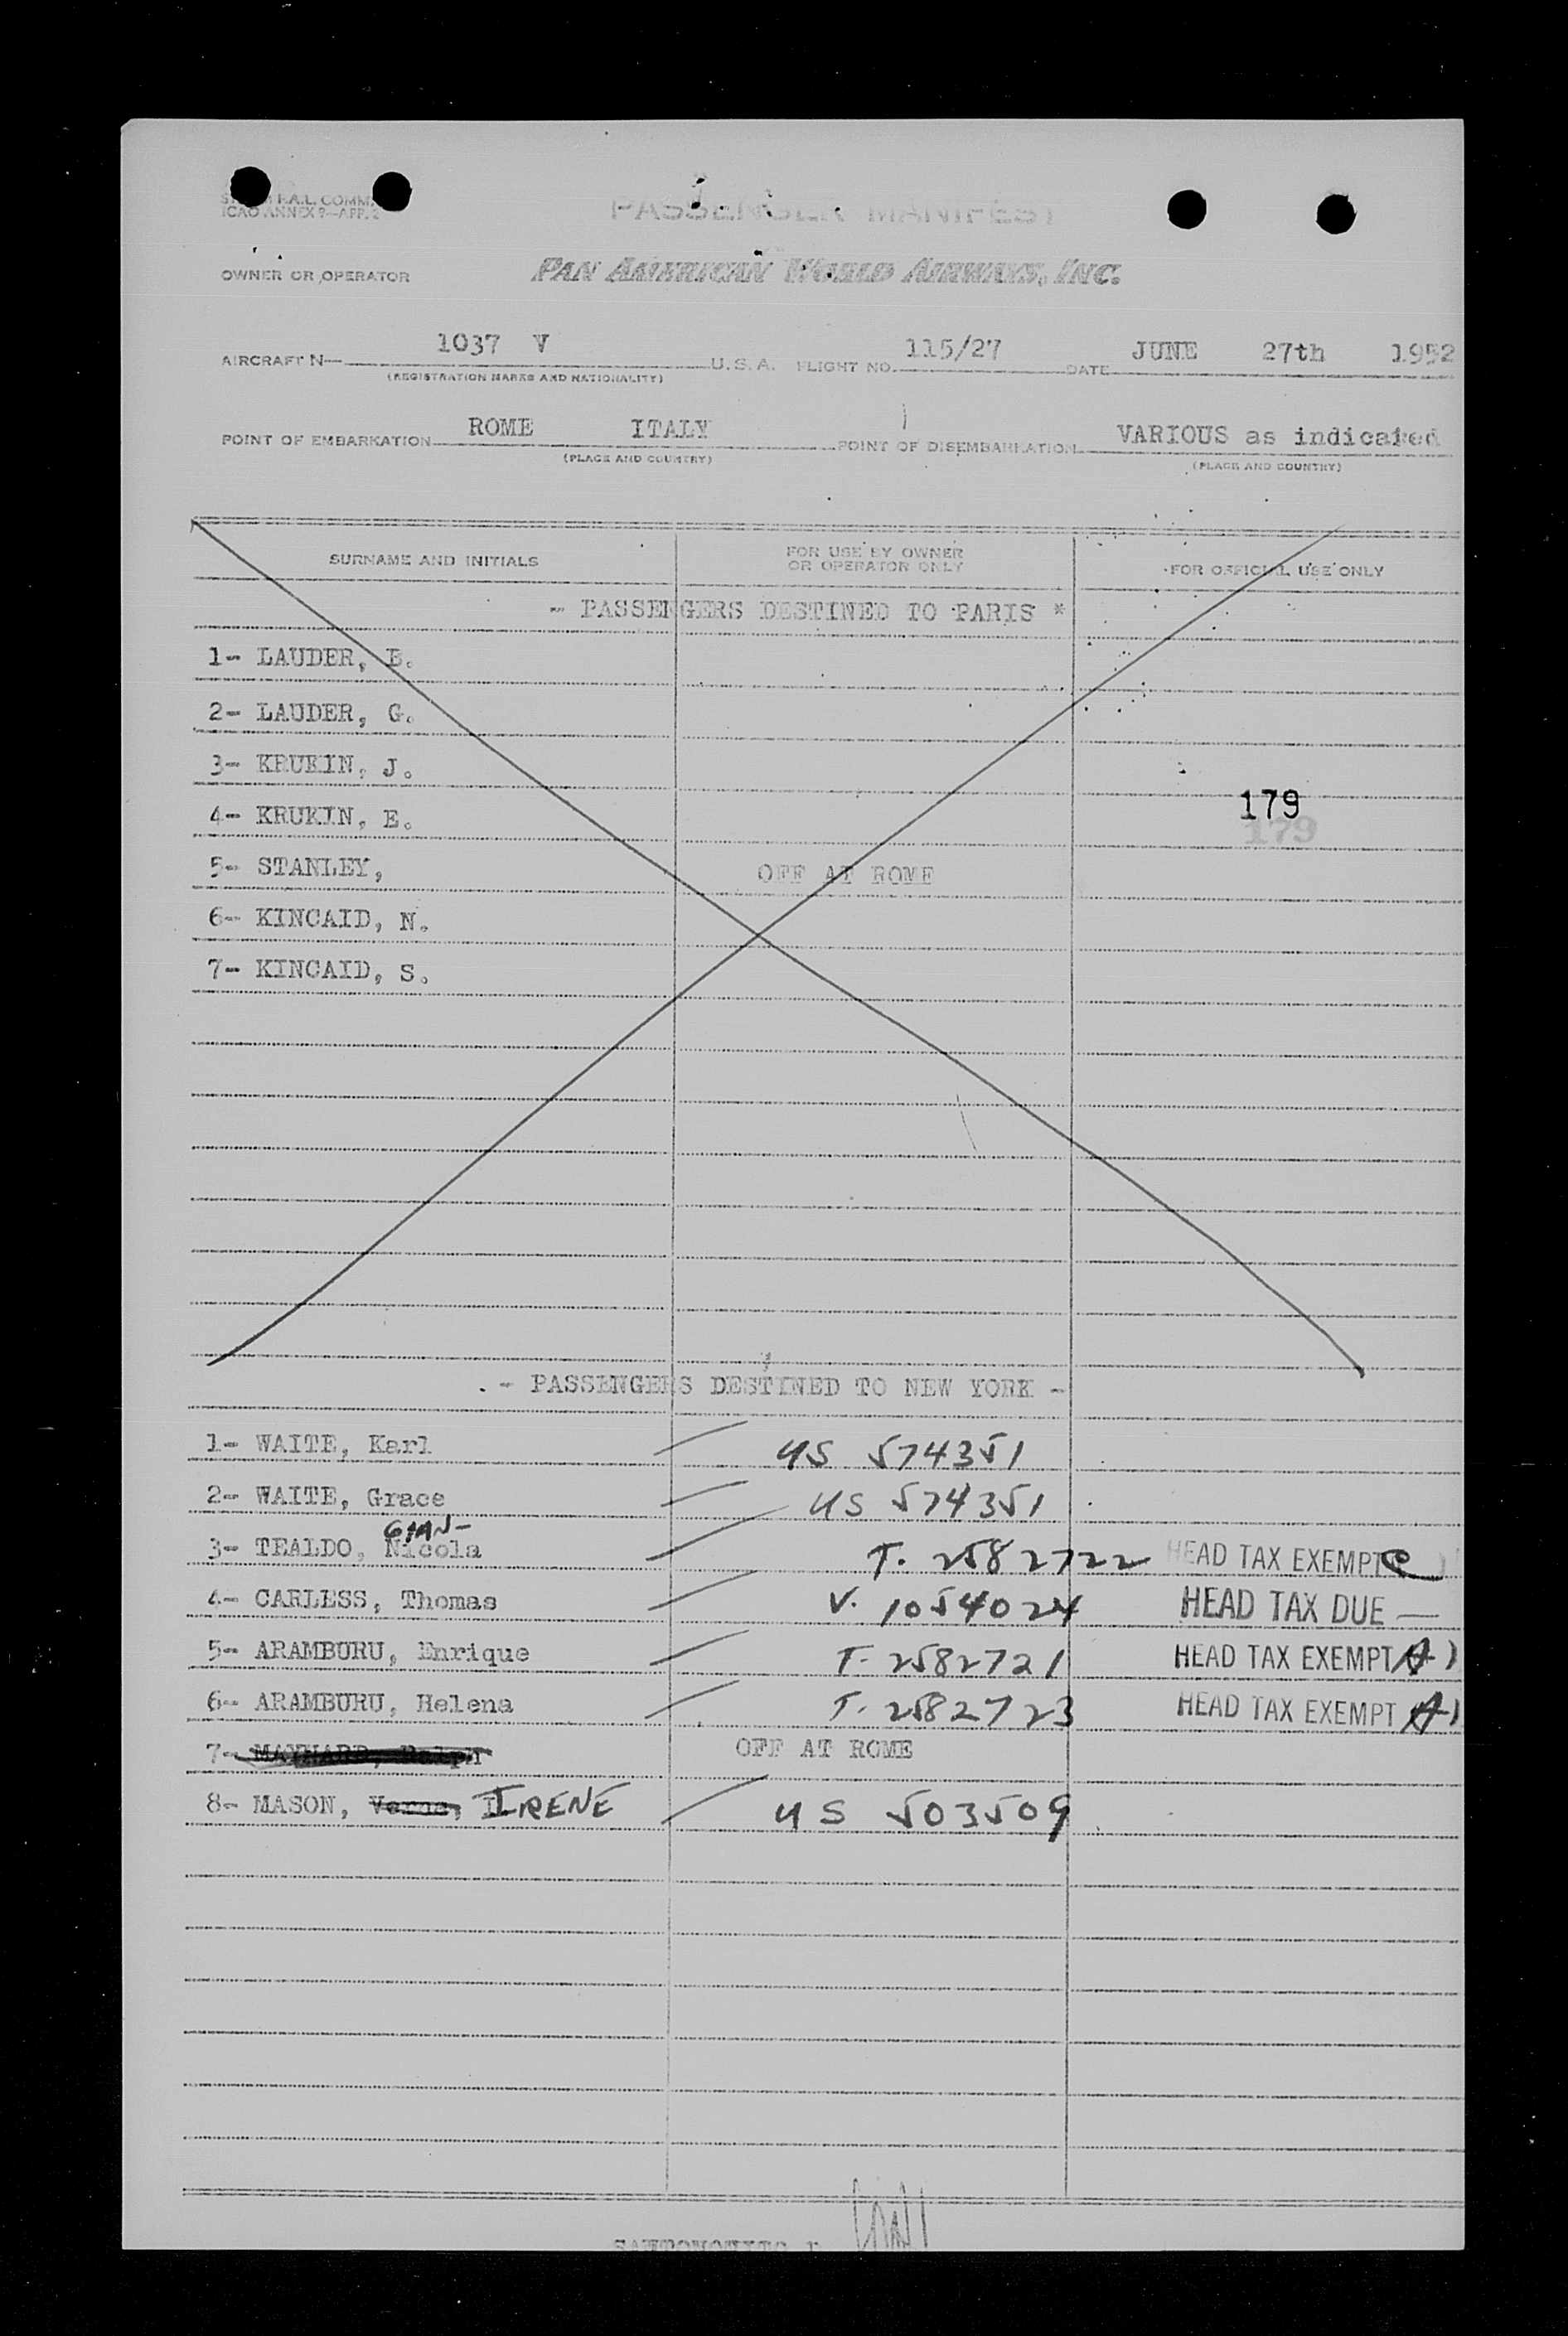 F.A.L. COMM.
ICAO ANNEX 9—APP. 2
PASSENGER MANIFEST
OWNER OR OPERATOR PAN AMERICAN WORLD AIRWAYS, INC.
AIRCRAFT N— 1037 V U.S.A. FLIGHT NO. 115/27 DATE JUNE 27th 1952
(REGISTRATION MARKS AND NATIONALITY)
POINT OF EMBARKATION ROME ITALY POINT OF DISEMBARKATION VARIOUS as indicated
(PLACE AND COUNTRY) (PLACE AND COUNTRY)
SURNAME AND INITIALS FOR USE BY OWNER OR OPERATOR ONLY FOR OFFICIAL USE ONLY
- PASSENGERS DESTINED TO PARIS *
1- LAUDER, B.
2- LAUDER, G.
3- KRUKIN, J.
179
4- KRUKIN, E.
179
5- STANLEY, OFF AT ROME
6- KINCAID, N.
7- KINCAID, S.
- PASSENGERS DESTINED TO NEW YORK -
1- WAITE, Karl US 574351
2- WAITE, Grace US 574351
GIAN-
3- TEALDO, Nicola T. 2582722 HEAD TAX EXEMPT
4- CARLESS, Thomas V. 1054024 HEAD TAX DUE —
5- ARAMBURU, Enrique T- 2582721 HEAD TAX EXEMPT (A)
6- ARAMBURU, Helena T. 2582723 HEAD TAX EXEMPT (A)
7- MAYNARD, Ralph OFF AT ROME
8- MASON, IRENE US 503509